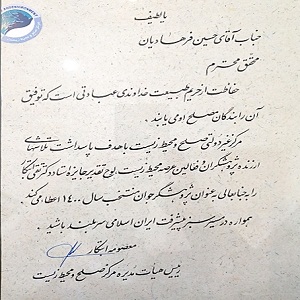 یا لطیف
جناب آقای حسین فرهادیان
محقق محترم
حفاظت از حریم طبیعت خداوندی عبادتی است که توفیق
آن را بندگان مصلح او می یابند.
مرکز غیر دولتی صلح و محیط زیست با هدف پاسداشت تلاشهای
ارزنده پژوهشگران و فعالین عرصه محیط زیست، لوح تقدیر جایزه ستاد دکتر تقی ابتکار
را به جنابعالی به عنوان پژوهشگر جوان منتخب سال ۱۴۰۰ اعطا می کند.
همواره در مسیر سبز پیشرفت ایران اسلامی سربلند باشید.
معصومه ابتکار
رییس هیأت مدیره مرکز صلح و محیط زیست